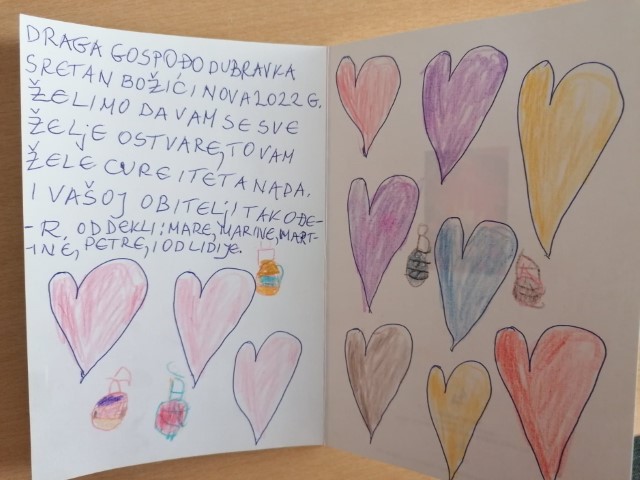 DRAGA GOSPOĐO DUBRAVKA
SRETAN BOŽIĆ I NOVA 2022 G.
ŽELIMO DA VAM SE SVE
ŽELJE OSTVARE, TO VAM
ŽELE CURE I TETA NADA.
I VAŠOJ OBITELJI TAKOĐE-
-R. OD DEKLI: MARE, MARINE, MART-
INE, PETRE, I OD LIDIJE.